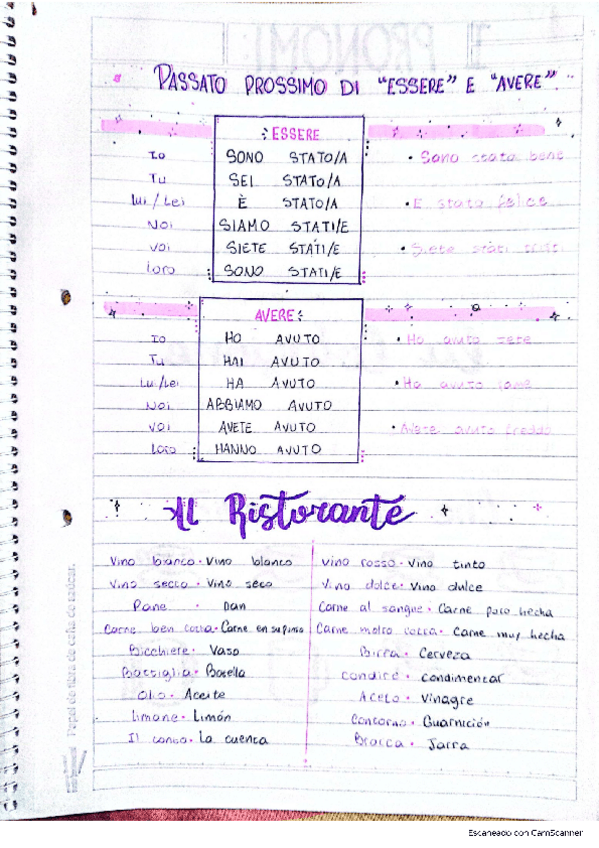 I PRONOMI
PASSATO PROSSIMO DI "ESSERE" E "AVERE"
ESSERE
Io SONO STATO/A • Sono stata bene
Tu SEI STATO/A
Lui / Lei È STATO/A • È stata felice
Noi SIAMO STATI/E
Voi SIETE STATI/E • Siete stati
Loro SONO STATI/E
AVERE:
Io HO AVUTO • Ho avuto sete
Tu HAI AVUTO
Lui/Lei HA AVUTO • Ha avuto fame
Noi ABBIAMO AVUTO
Voi AVETE AVUTO • Avete avuto freddo
Loro HANNO AVUTO
Il Ristorante
Vino bianco • Vino blanco Vino rosso • Vino tinto
Vino secco • Vino seco Vino dolce • Vino dulce
Pane • Pan Carne al sangue • Carne poco hecha
Carne ben cotta • Carne en su punto Carne molto cotta • Carne muy hecha
Bicchiere • Vaso Birra • Cerveza
Bottiglia • Botella condire • condimentar
Olio • Aceite Aceto • Vinagre
Limone • Limón Contorno • Guarnición
Il conto • La cuenta Brocca • Jarra
Papel de fibra de caña de azúcar.
Escaneado con CamScanner